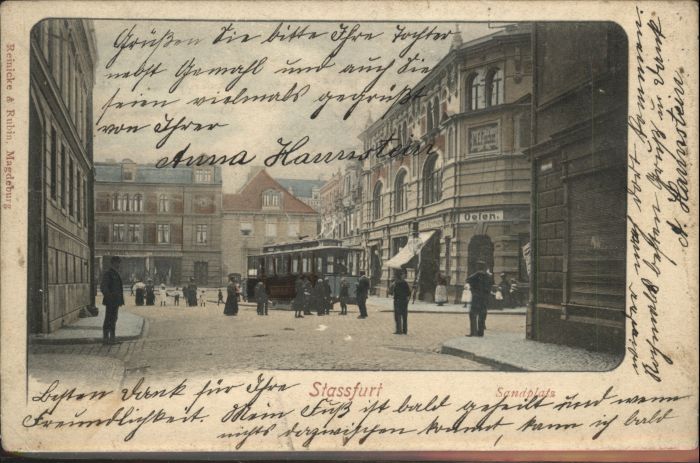 Grüßen Sie bitte Ihre Tochter
nebst Gemahl und auch Sie
seien vielmals gegrüßt
von Ihrer
Anna Hammstein
Oelen.
Reinicke & Rubin, Magdeburg
Stassfurt
Sandplatz
Besten Dank für Ihre
Freundlichkeit. Mein Fuß ist bald geheilt und wenn
nichts dazwischen kommt, kann ich bald
Nochmals besten Gruß u. Dank
A. Hammstein.